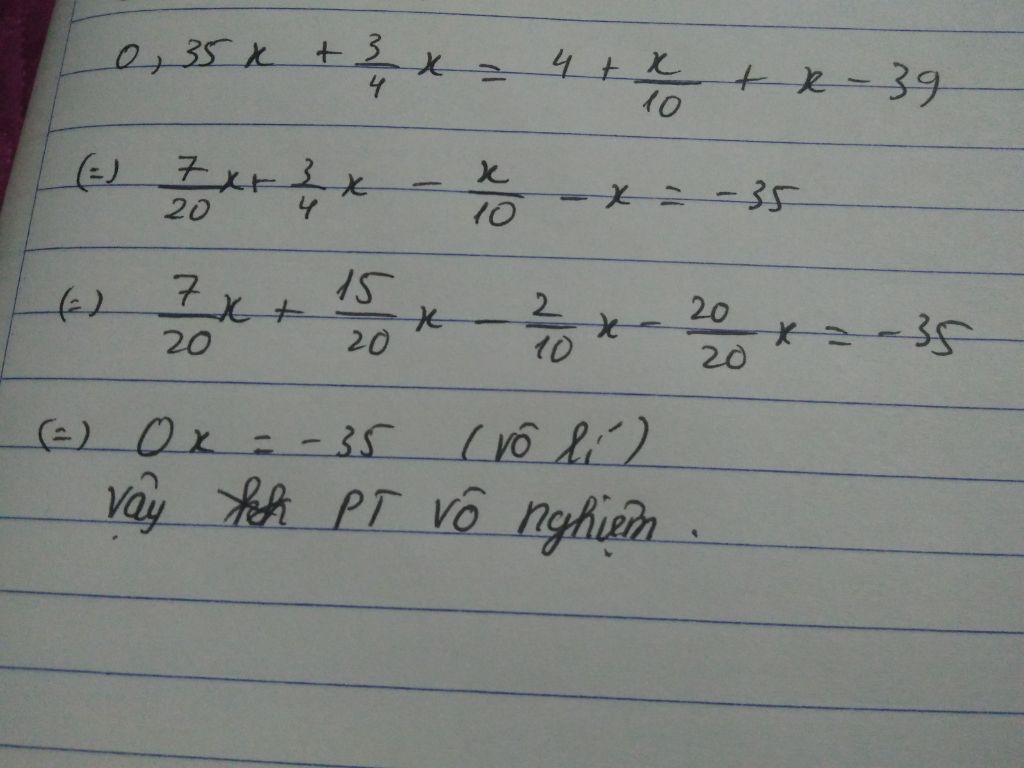 0,35x + 3/4 x = 4 + x/10 + x - 39
(=) 7/20 x + 3/4 x - x/10 - x = -35
(=) 7/20 x + 15/20 x - 2/10 x - 20/20 x = -35
(=) 0x = -35 (vô lí)
vậy PT vô nghiệm.